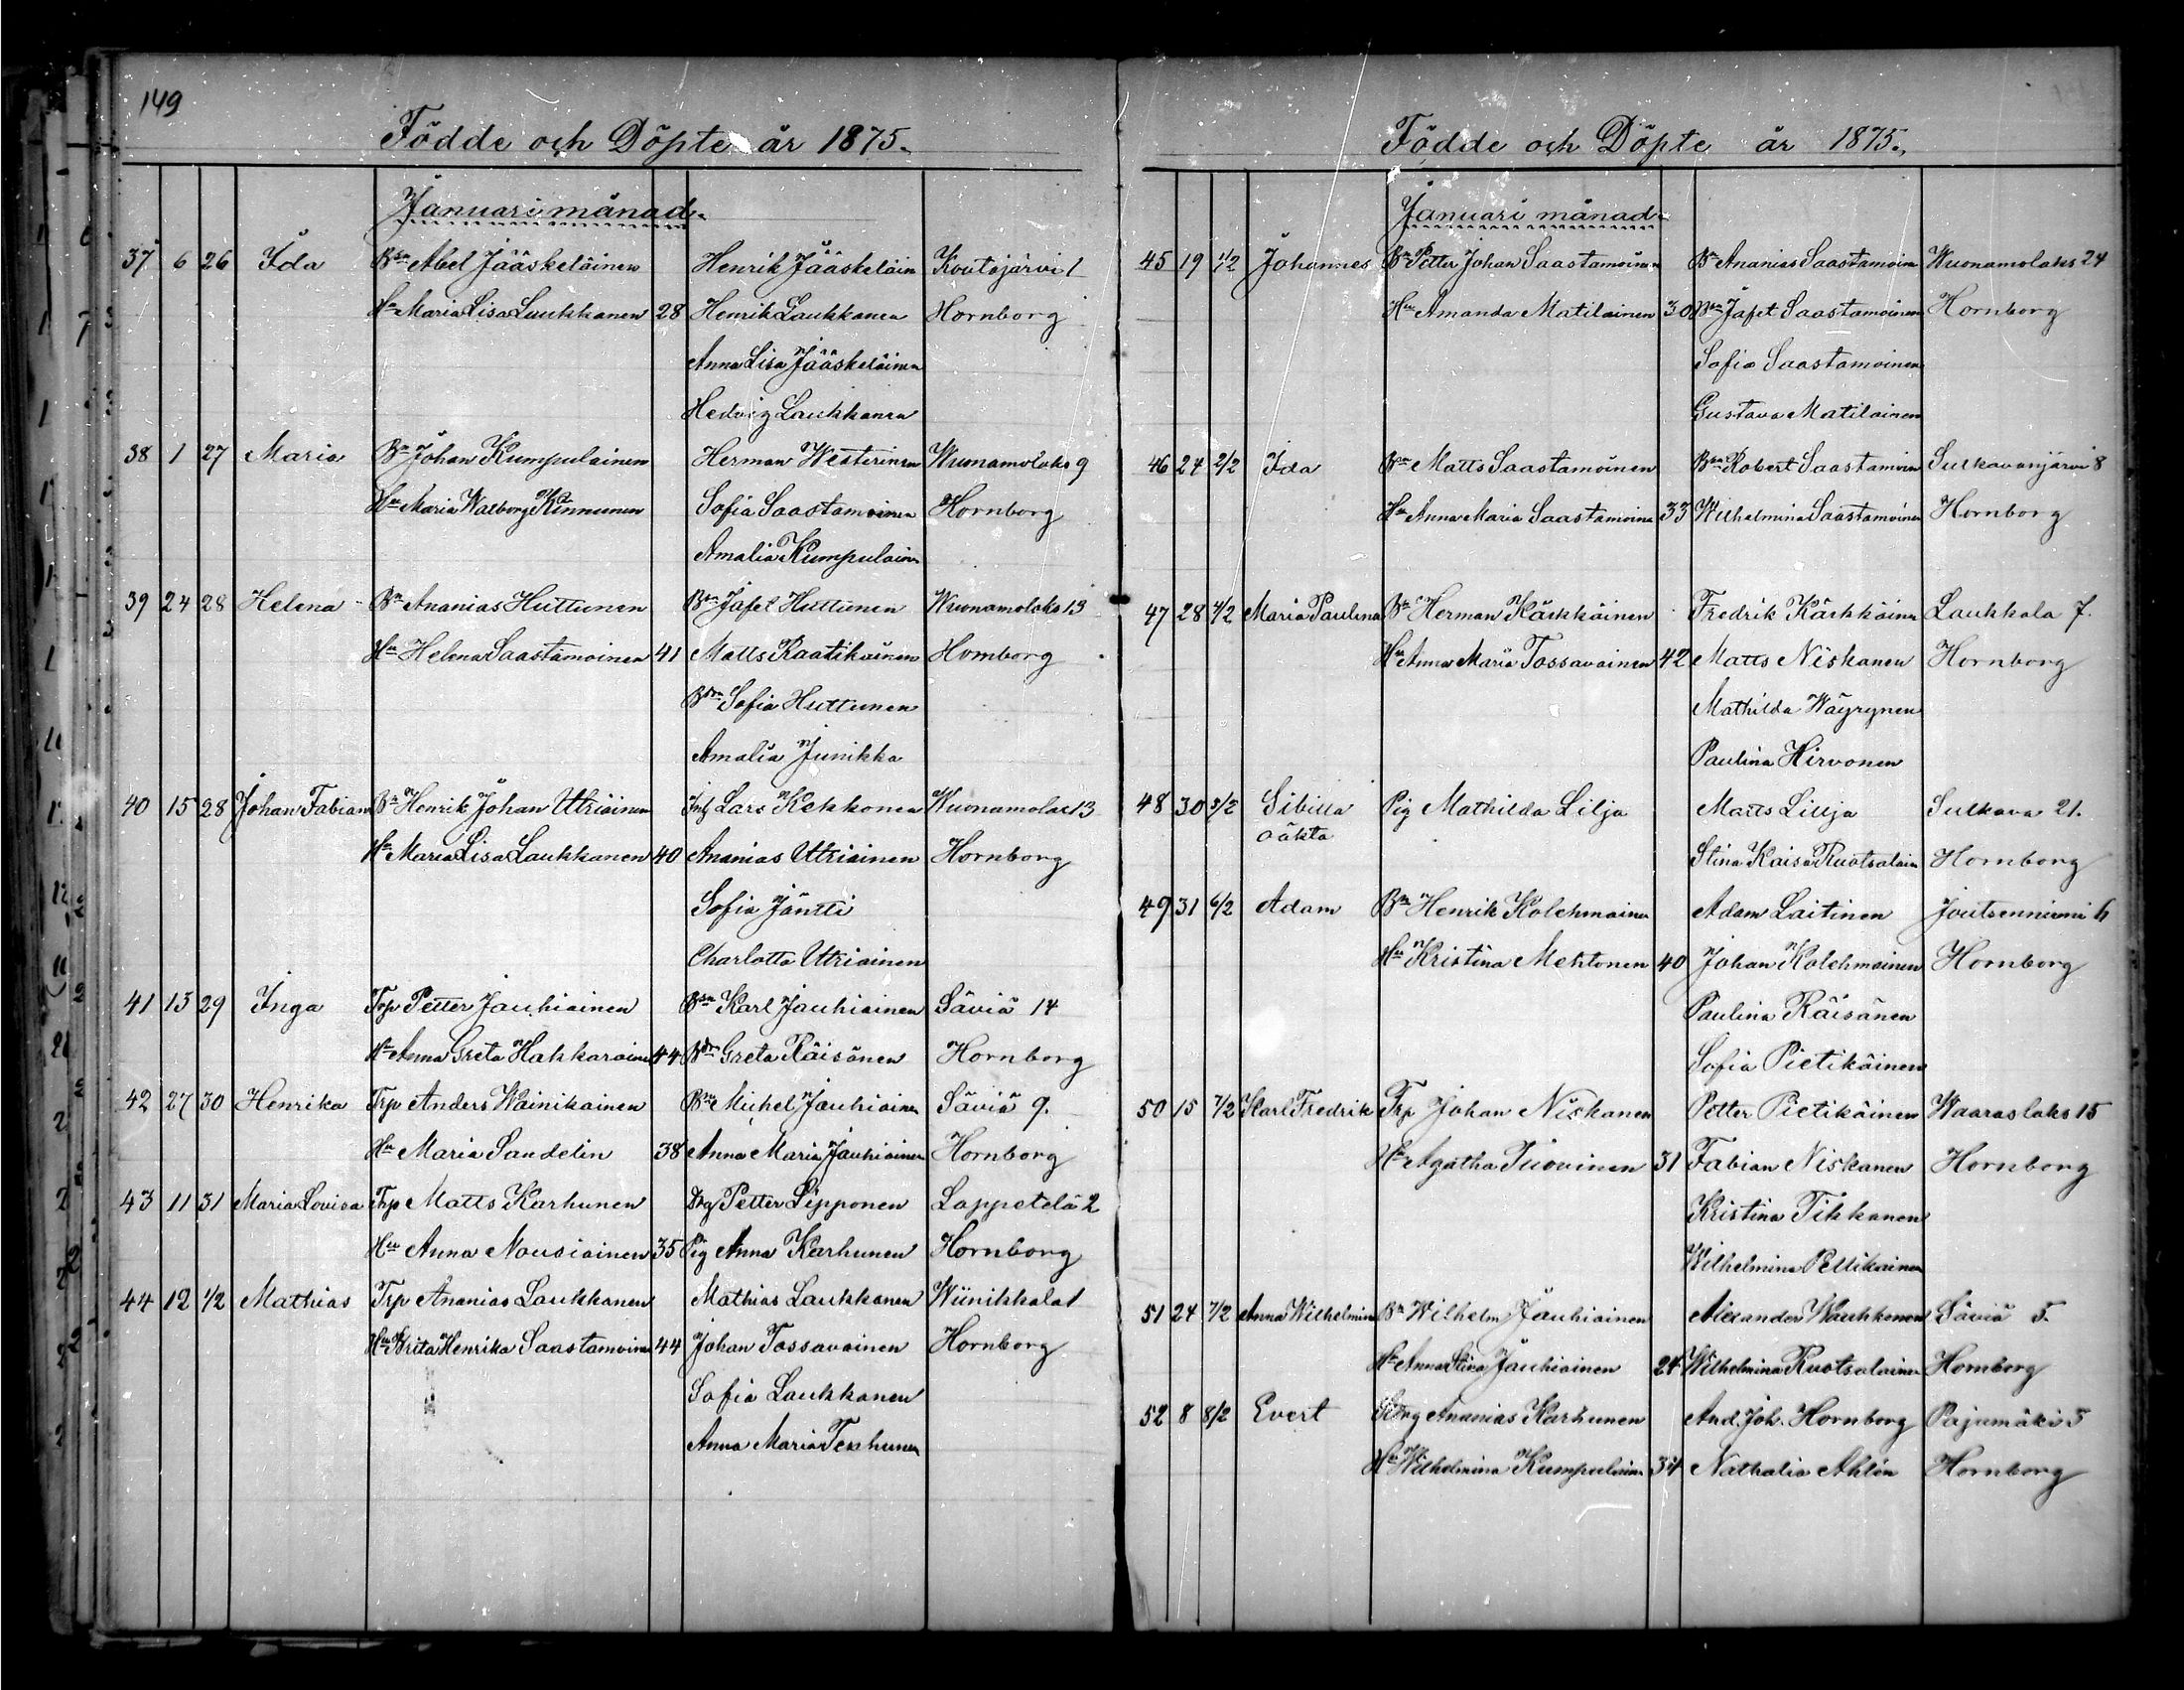 149
Födde och Döpte år 1875.
Januari månad.
37 6 26 Ida Bn Abel Jääskeläinen Henrik Jääskeläin Koutajärvi 1
Hu Maria Lisa Laukkanen 28 Henrik Laukkanen Hornborg
Anna Lisa Jääskeläinen
Hedvig Laukkanen
38 1 27 Maria Bn Johan Kumpulainen Herman Westerinen Wuonamolaks 9
Hu Maria Walborg Kinnunen Sofia Saastamoinen Hornborg
Amalia Kumpulain
39 24 28 Helena Bn Ananias Huttunen Bn Jafet Huttunen Wuonamolaks 13
Hu Helena Saastamoinen 41 Matts Raatikainen Hornborg
Bdn Sofia Huttunen
Amalia Junikka
40 15 28 Johan Fabian Bn Henrik Johan Utriainen Lars Kekkonen Wuonamolax 13
Hu Maria Lisa Laukkanen 40 Ananias Utriainen Hornborg
Sofia Jäntti
Charlotta Utriainen
41 13 29 Inga Trp Petter Jauhiainen Bsn Karl Jauhiainen Säviä 14
Hu Anna Greta Hakkarainen 44 Bdn Greta Räisänen Hornborg
42 27 30 Henrika Trp Anders Wainikainen Bn Michel Jauhiainen Säviä 9.
Hu Maria Sandelin 38 Anna Maria Jauhiainen Hornborg
43 11 31 Maria Lovisa Trp Matts Karhunen Drg Petter Lipponen Lappetelä 2
Hu Anna Nousiainen 35 Pig Anna Karhunen Hornborg
44 12 1/2 Mathias Trp Ananias Laukkanen Mathias Laukkanen Wiinikkala 1
Hu Brita Henrika Saastamoinen 44 Johan Tossavainen Hornborg
Sofia Laukkanen
Anna Maria Terhunen
Födde och Döpte år 1875.
Januari månad.
45 19 1/2 Johannes Bn Petter Johan Saastamoinen Bn Ananias Saastamoin Wuonamolaks 24
Hu Amanda Matilainen 30 Bn Jafet Saastamoinen Hornborg
Sofia Saastamoinen
Gustava Matilainen
46 24 2/2 Ida Bn Matts Saastamoinen Bn Robert Saastamoin Sulkavanjärvi 8
Hu Anna Maria Saastamoine 33 Wilhelmina Saastamoinen Hornborg
47 28 4/2 Maria Paulina Bn Herman Kärkkäinen Fredrik Kärkkäinen Laukkala 7.
Hu Anna Maria Tossavainen 42 Matts Niskanen Hornborg
Mathilda Wäyrynen
Paulina Hirvonen
48 30 5/2 Sibilla Pig Mathilda Lilja Matts Lilja Sulkava 21.
oäkta Stina Kaisa Ruotsalain Hornborg
49 31 6/2 Adam Bn Henrik Kolehmainen Adam Laitinen Joutsenniemi 6
Hu Kristina Mehtonen 40 Johan Kolehmainen Hornborg
Paulina Räisänen
Sofia Pietikäinen
50 15 7/2 Karl Fredrik Trp Johan Niskanen Petter Pietikäinen Waaraslaks 15
Hu Agatha Tuovinen 31 Fabian Niskanen Hornborg
Kristina Tikkanen
Wilhelmina Pellikainen
51 24 7/2 Anna Wilhelmina Bn Wilhelm Jauhiainen Alexander Wauhkonen Säviä 5.
Hu Anna Stina Jauhiainen 24 Wilhelmina Ruotsalainen Hornborg
52 8 8/2 Evert Ananias Karhunen And. Joh. Hornborg Pajumäki 5
Hu Wilhelmina Kumpulainen 34 Nathalia Ahlen Hornborg